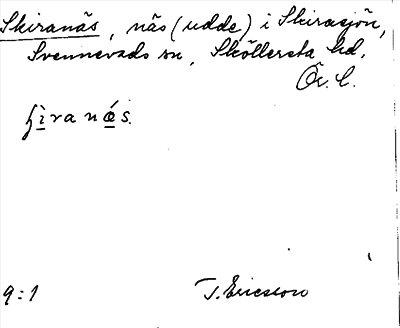 Skiranäs, näs (udde) i Skirasjön,
Svennevads sn, Sköllersta hd,
Ör. l.
ʃi̠ranǽ̠s.
9:1 T. Ericsson